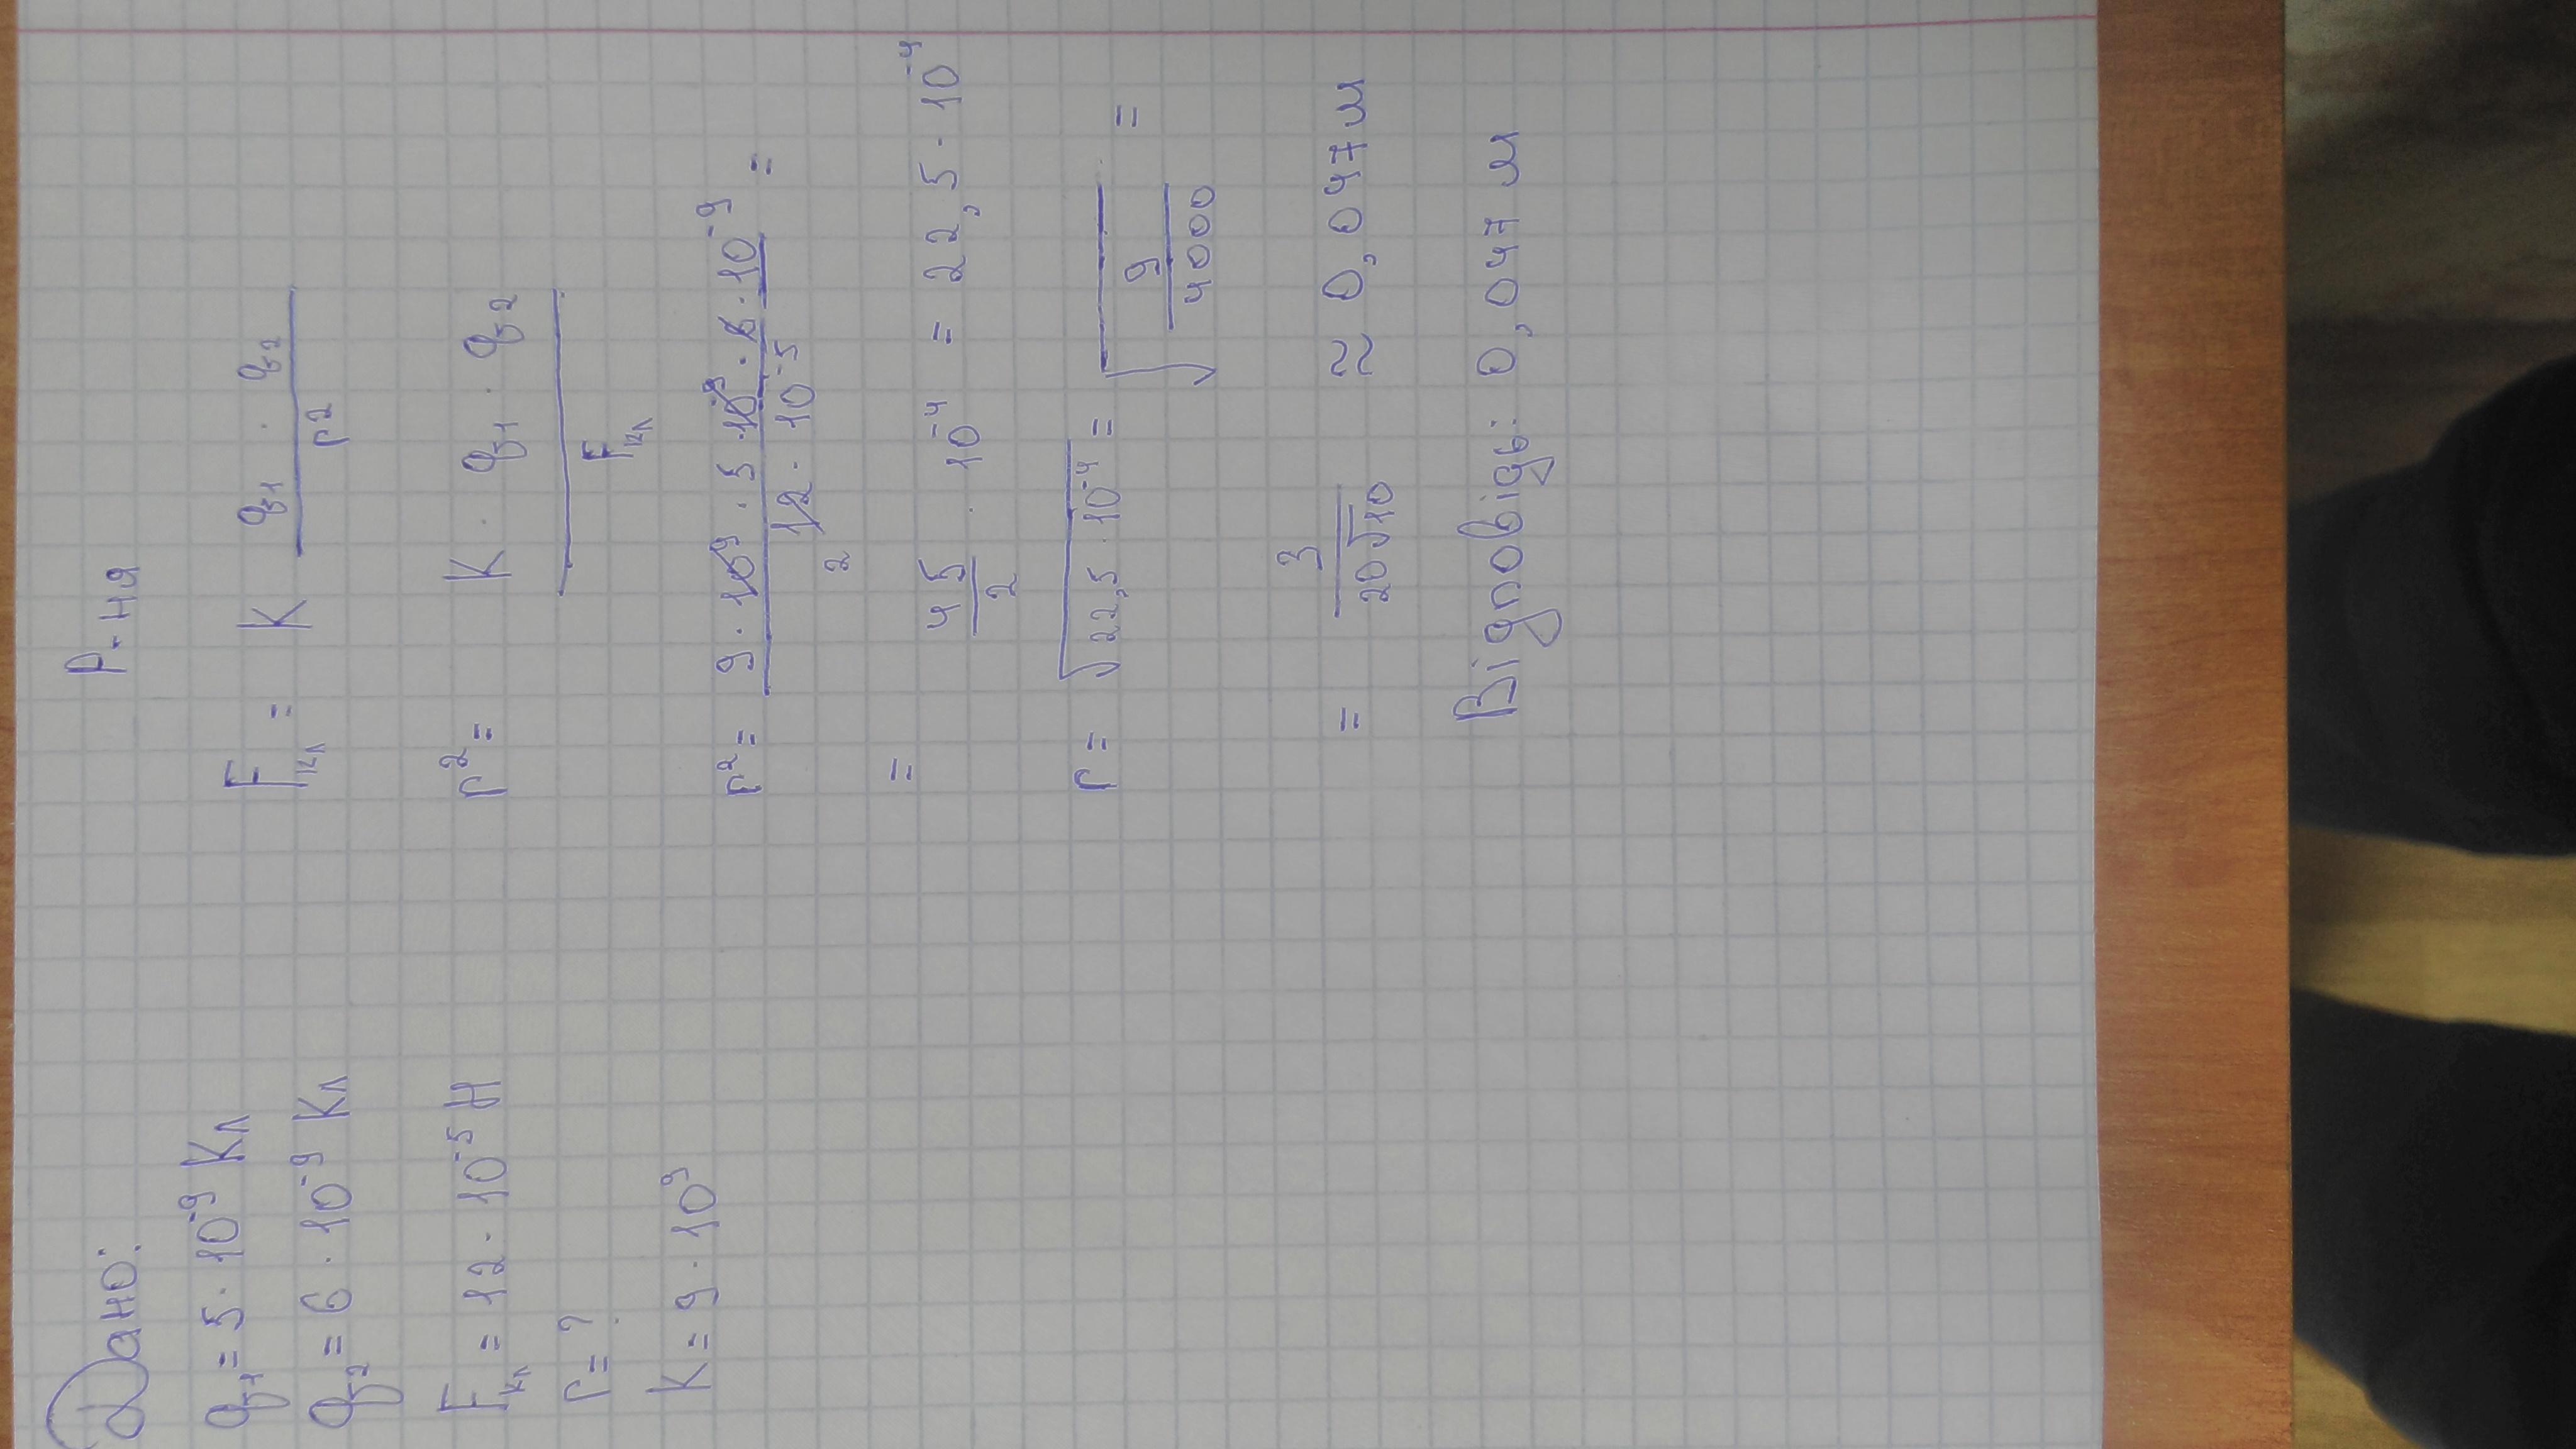 Дано:
q₁ = 5 · 10⁻⁹ Кл
q₂ = 6 · 10⁻⁹ Кл
Fкл = 12 · 10⁻⁵ Н
r = ?
K = 9 · 10⁹
Р-ня
Fкл = K q₁ · q₂ / r²
r² = K · q₁ · q₂ / Fкл
r² = 9 · 10⁹ · 5 · 10⁻⁹ · 6 · 10⁻⁹ / 12 · 10⁻⁵ =
2
= 45/2 · 10⁻⁴ = 22,5 · 10⁻⁴
r = √22,5 · 10⁻⁴ = √9/4000 =
= 3/20√10 ≈ 0,047 м
Відповідь: 0,047 м